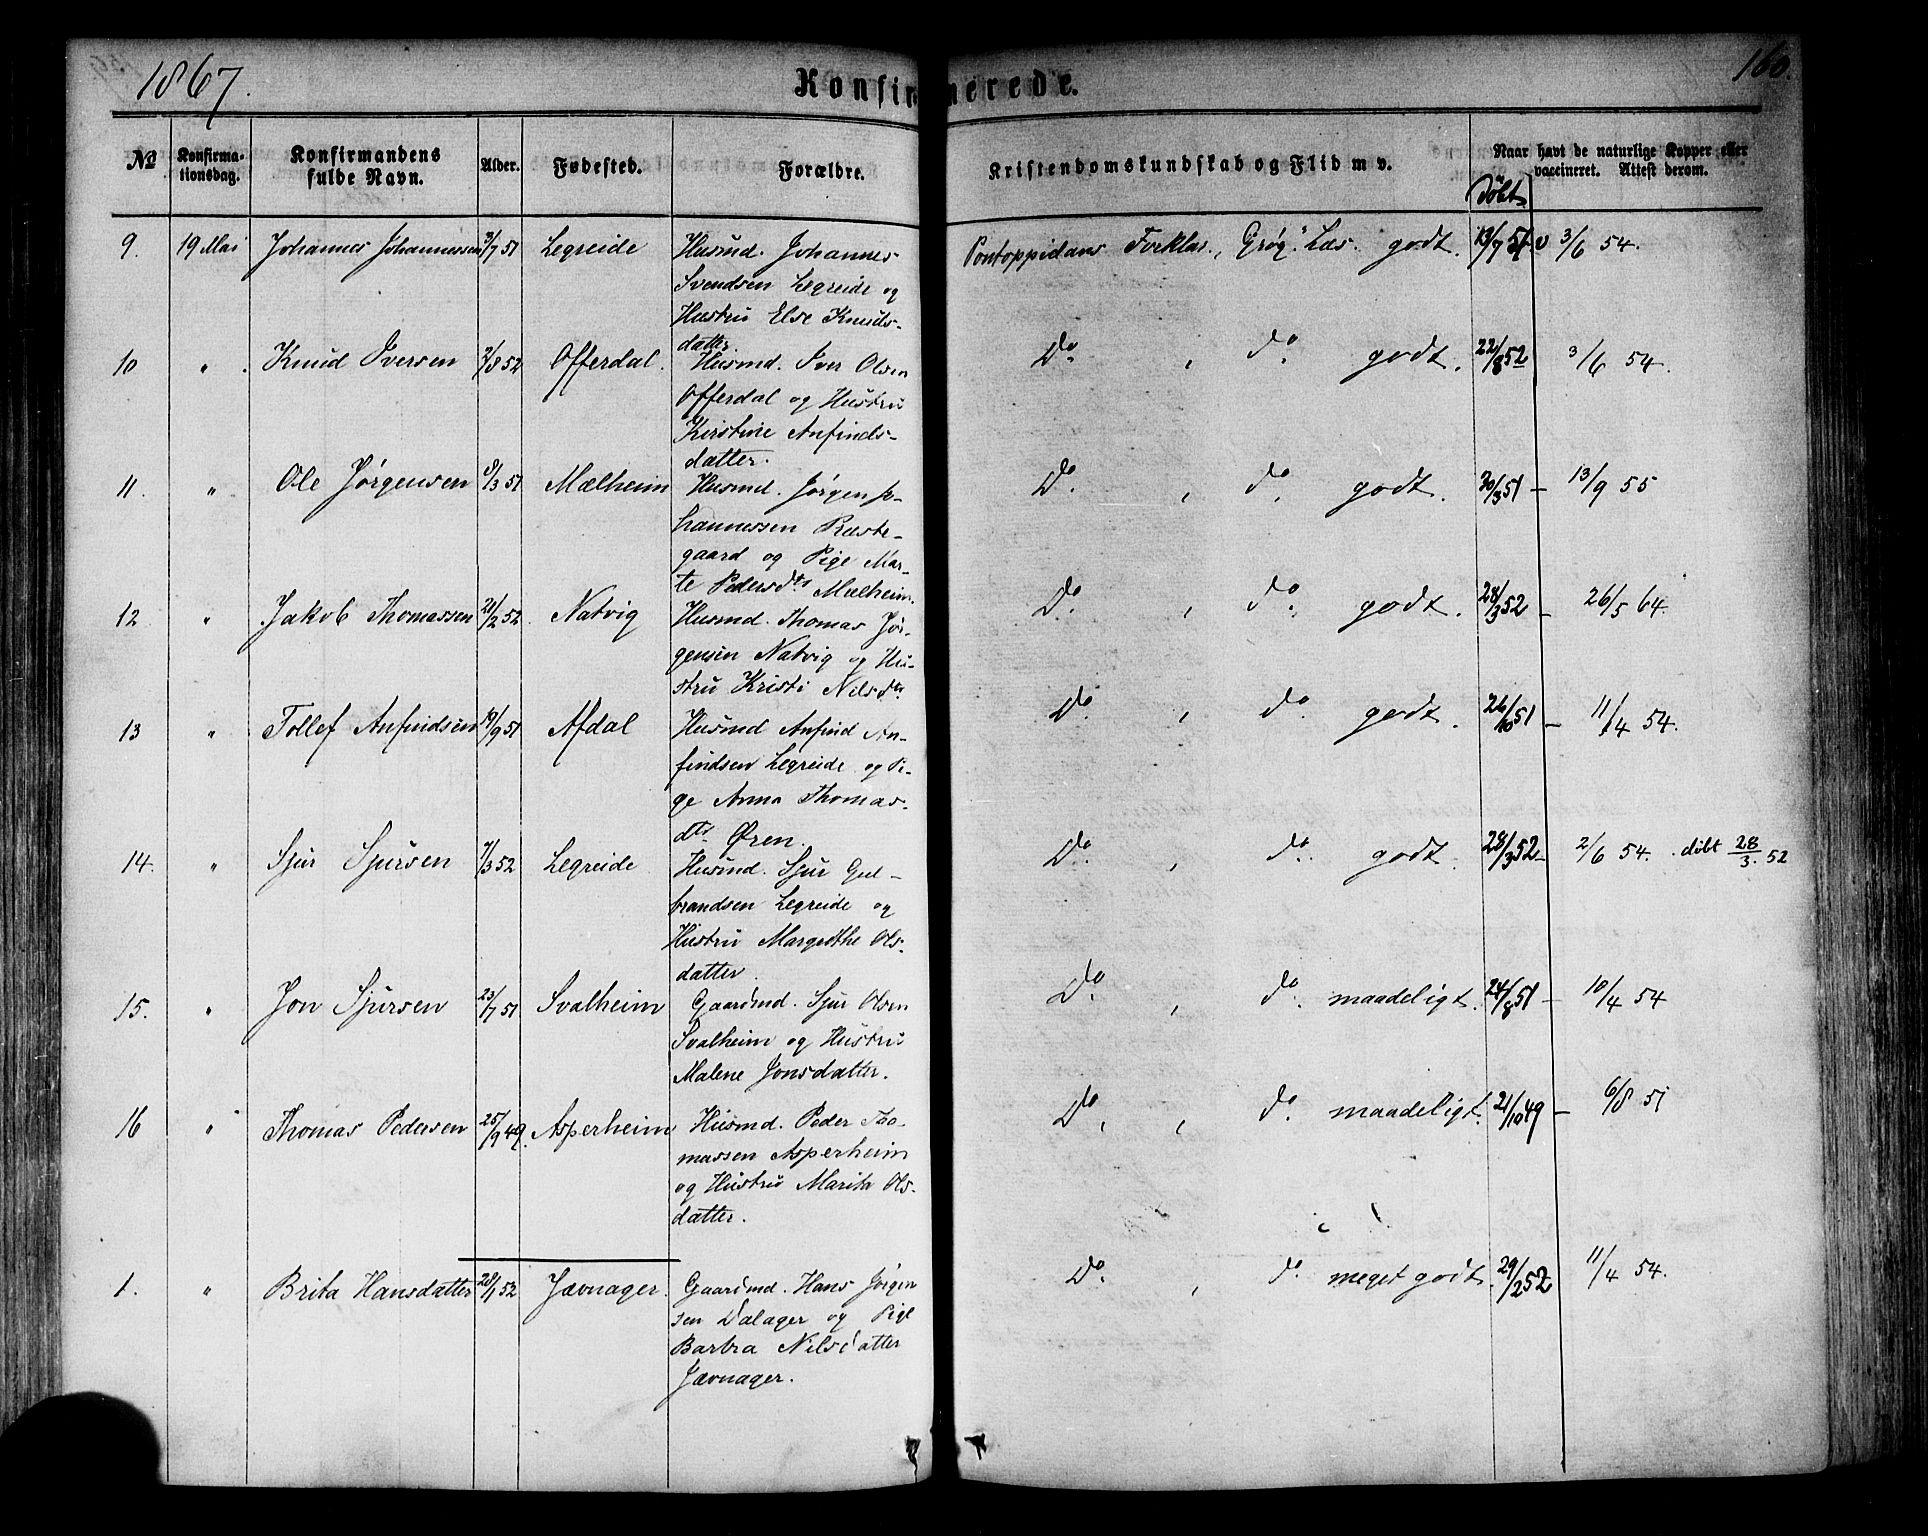 1867.
Konfirmerede.
160.
№ Konfirma-tionsdag. Konfirmandens fulde Navn. Alder. Fødested. Forældre. Kristendomskundskab og Flid m v. Døbt Naar havt de naturlige Kopper eller vaccineret. Attest derom.
9. 19 Mai Johannes Johannessen 3/7 51 Legreide Husmd. Johannes Pontoppidans Forklar., Grøg. Læs. godt. 13/7 51 v 3/6 54.
Svendsen Legreide og
Hustru Else Knuds-
datter
10 " Knud Iversen 2/8 52 Offerdal. Husmd. Iver Olsen Do. , do. godt. 22/8 52 3/6 54.
Offerdal og Hustru
Kirstine Anfinds-
datter.
11. " Ole Jørgensen 8/3 51 Mælheim Husmd. Jørgen Jo- Do. , do. godt. 30/3 51 – 13/9 55
hannessen Præste-
gaard og Pige Mar-
te Pedersdtr Mælheim.
12 " Jakob Thomassen 21/2 52 Natvig Husmd. Thomas Jør- Do. , do. godt. 28/3 52 – 26/5 64.
gensen Natvig og Hu-
stru Kristi Nilsdtr
13 " Tollef Anfindsen 19/9 51 Afdal Husmd Anfind An- Do. , do. godt. 26/10 51 – 11/4 54.
findsen Legreide og Pi-
ge Anna Thomas-
dtr Øren.
14. " Sjur Sjursen 7/3 52 Legreide Husmd. Sjur Gul- Do. , do. godt. 28/3 52 – 2/6 54. døbt 28/3. 52
brandsen Legreide og
Hustru Margrethe Ols-
datter
15. " Jon Sjursen 23/7 51 Svalheim Gaardmd. Sjur Olsen Do. , do. maadeligt. 24/8 51 – 10/4 54
Svalheim og Hustru
Malene Jonsdatter.
16 " Thomas Pedersen 25/9 49. Asperheim Husmd. Peder Tho- Do. , do. maadeligt. 21/10 49 – 6/8 51
massen Asperheim
og Hustru Marita Ols-
datter.
1. " Brita Hansdatter 28/1 52 Jævnager. Gaardmd. Hans Jørgen Do. , do. meget godt. 29/2 52 11/4 54.
sen Dalager og Pige
Barbra Nilsdatter
Jævnager.